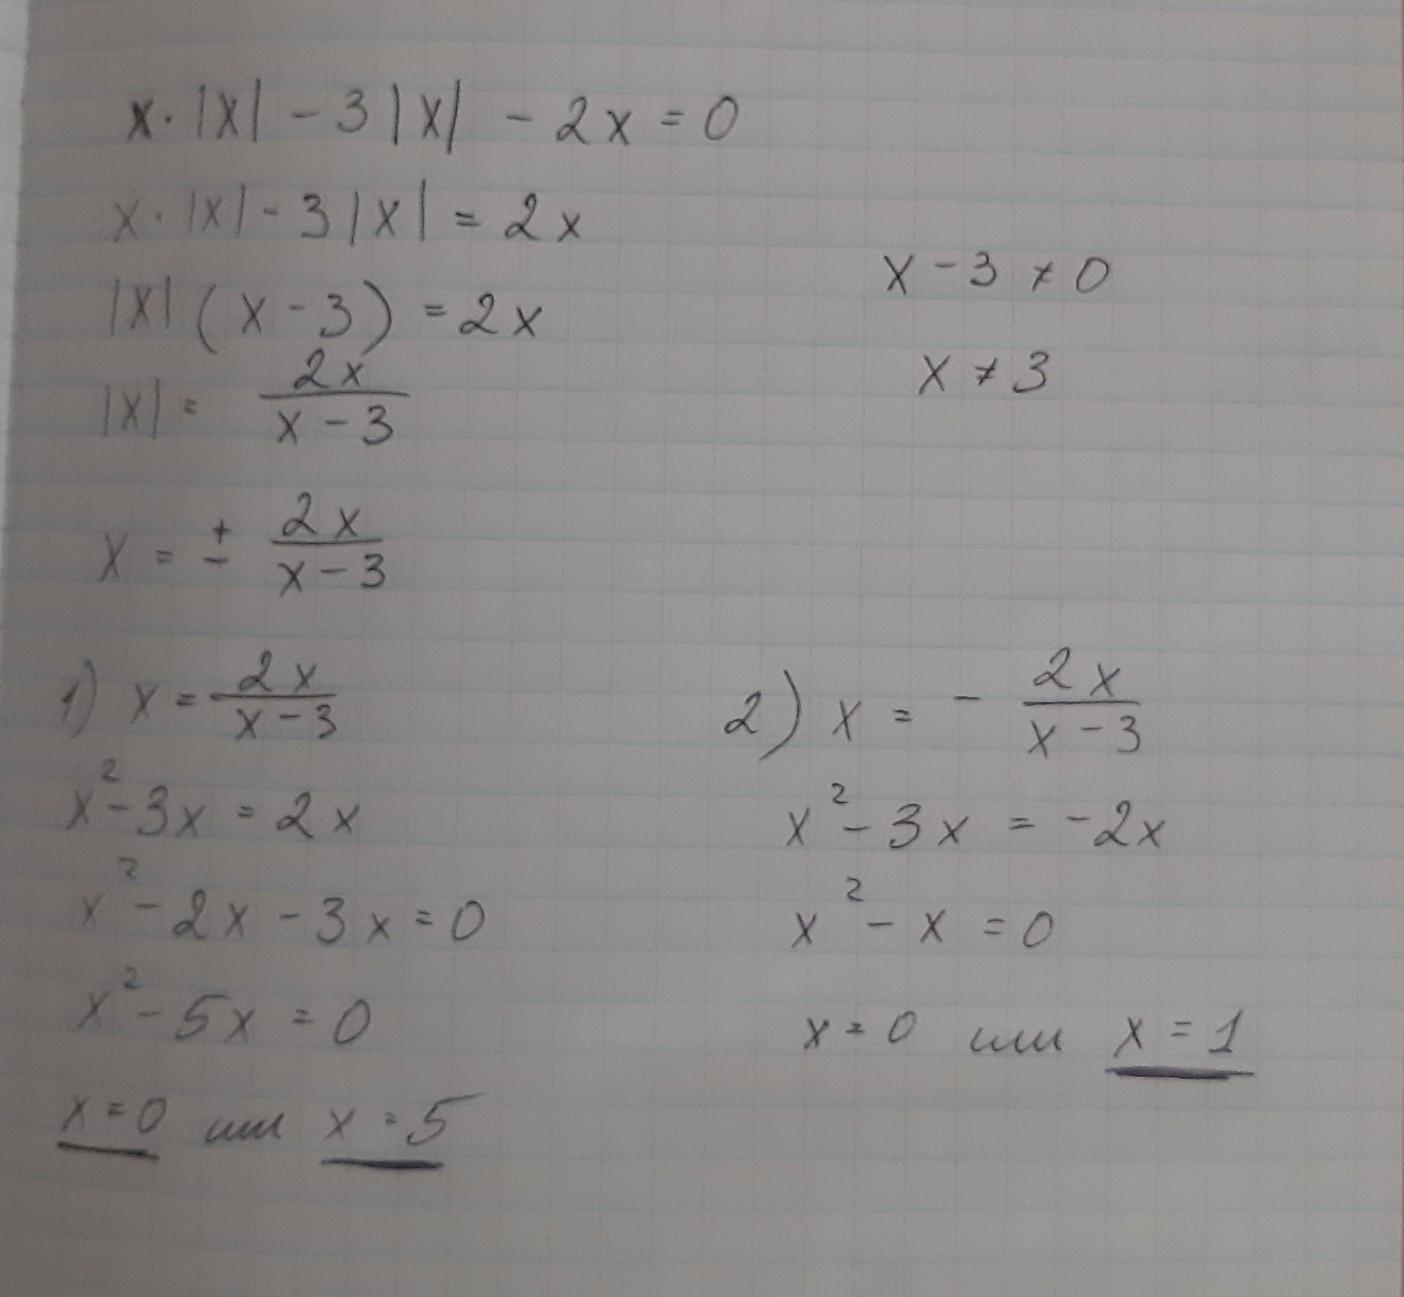 x · |x| - 3|x| - 2x = 0
x · |x| - 3|x| = 2x
|x| (x - 3) = 2x
x - 3 ≠ 0
|x| = 2x / (x - 3)
x ≠ 3
x = ± 2x / (x - 3)
1) x = 2x / (x - 3)
x² - 3x = 2x
x² - 2x - 3x = 0
x² - 5x = 0
x = 0 или x = 5
2) x = - 2x / (x - 3)
x² - 3x = -2x
x² - x = 0
x = 0 или x = 1